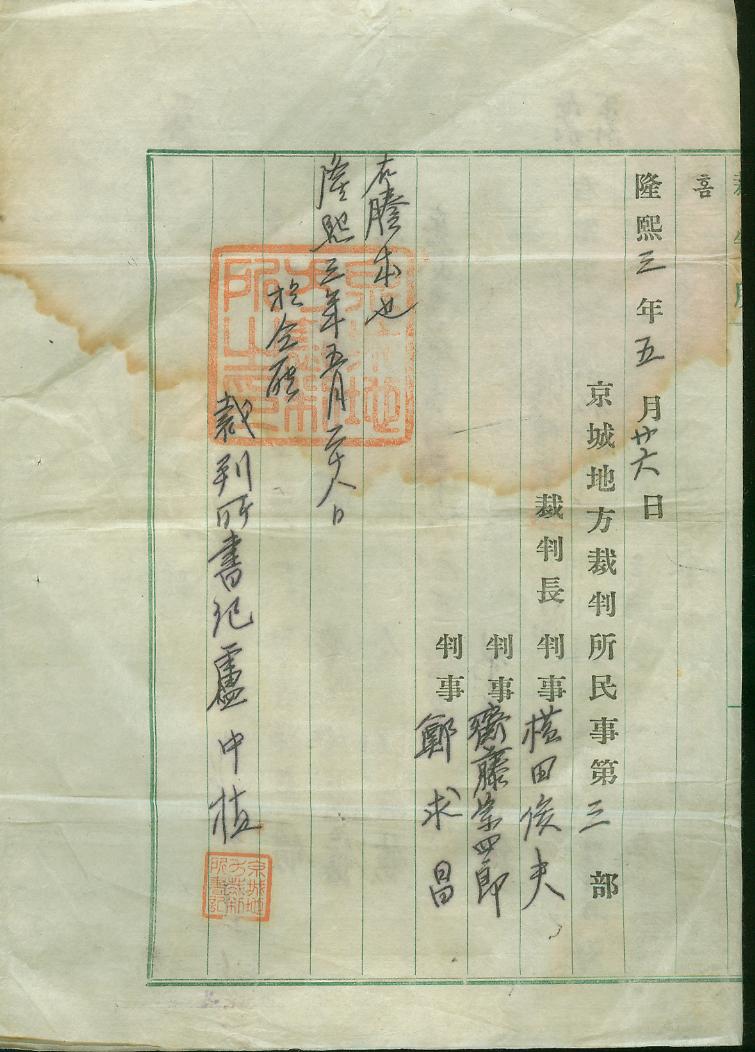 홈
隆熙三年五月廿六日
京城地方裁判所民事第三部
裁判長 判事 橫田俊夫
判事 齋藤宗四郎
判事 鄭求昌
右謄本也
隆熙三年五月二十八日
於仝廳
裁判所書記 盧中植
京城地方裁判所之印
京城地方裁判所書記